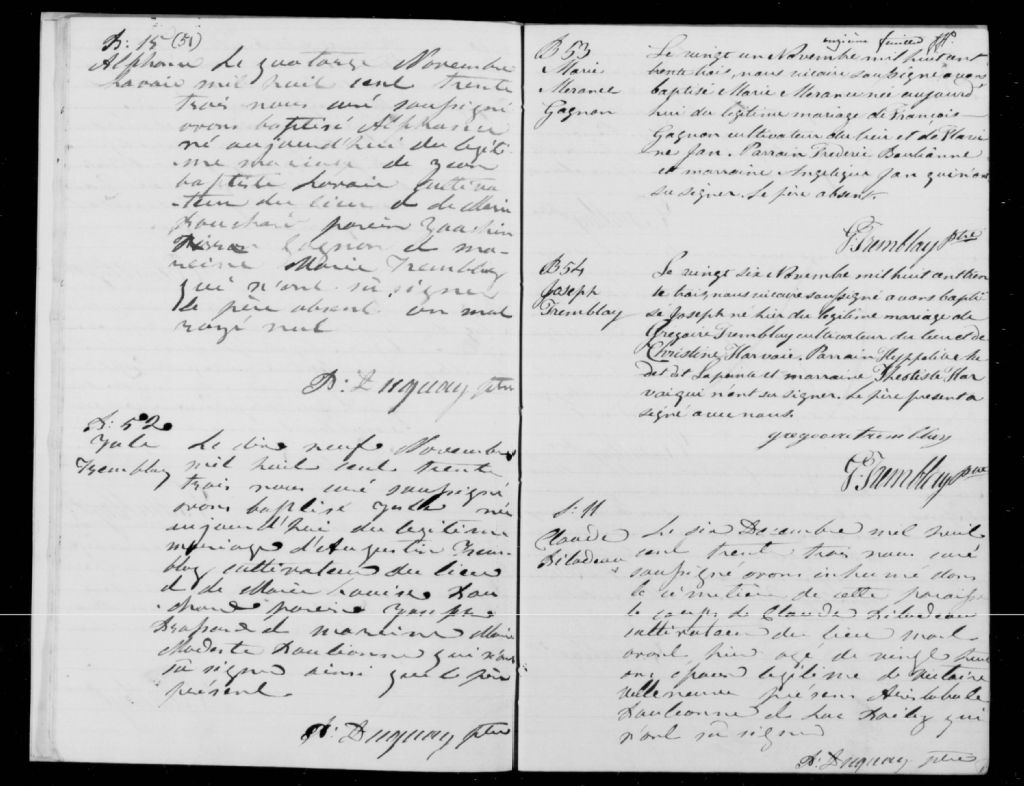 B: 15 (51)
Alphonse Le quatorze Novembre
Savaie mil huit cent trente
trois nous curé soussigné
avons baptisé Alphonse
né aujourd'hui du legiti-
me mariage de Jean
baptiste Savaie cultiva-
teur du lieu & de Marie
Bouchard parein
Gagnon et ma-
reine Marie Tremblay
qui n'ont su signer
le père absent un mot
rayé nul
D: Duguay ptre
B: 52
Jule Le dix neuf Novembre
Tremblay mil huit cent trente
trois nous curé soussigné
avons baptisé Jule né
aujourd'hui du legitime
mariage d'Augustin Trem-
blay cultivateur du lieu
& de Marie Louise Bou
chard parein Joseph
Brassard & mareine Marie
Modeste qui n'ont
su signer ainsi que le père
présent.
D: Duguay ptre
onzième feuillet
B 53 Le vingt un Novembre mil huit cent
Marie trente trois, nous vicaire soussigné avons
Merance baptisé Marie Merance née aujourd
Gagnon hui du legitime mariage de François
Gagnon cultivateur du lieu et de Marie
né Jan. Parrain Frederic
et marraine Angelique Jan qui n'ont
su signer. Le père absent.
Tremblay ptre
B 54 Le vingt six Novembre mil huit cent tren
Joseph te trois nous vicaire soussigné avons bapti
Tremblay sé Joseph né hier du legitime mariage de
Gregoire Tremblay cultivateur du lieu et de
Christine Harvaie. Parrain Hyppolite
dit Lapointe et marraine Théotiste Har
vai qui n'ont su signer. Le père present a
signé avec nous.
gregoire tremblay
Tremblay ptre
S: 11
Claude Le six Decembre mil huit
Bilodeau cent trente trois nous curé
soussigné avons inhumé dans
le cimetiere de cette paroisse
le corps de Claude Bilodeau
cultivateur du lieu mort
avant hier agé de vingt
ans epoux legitime de
villeneuve présens Aristobule
& Luc qui
n'ont su signer
D: Duguay ptre